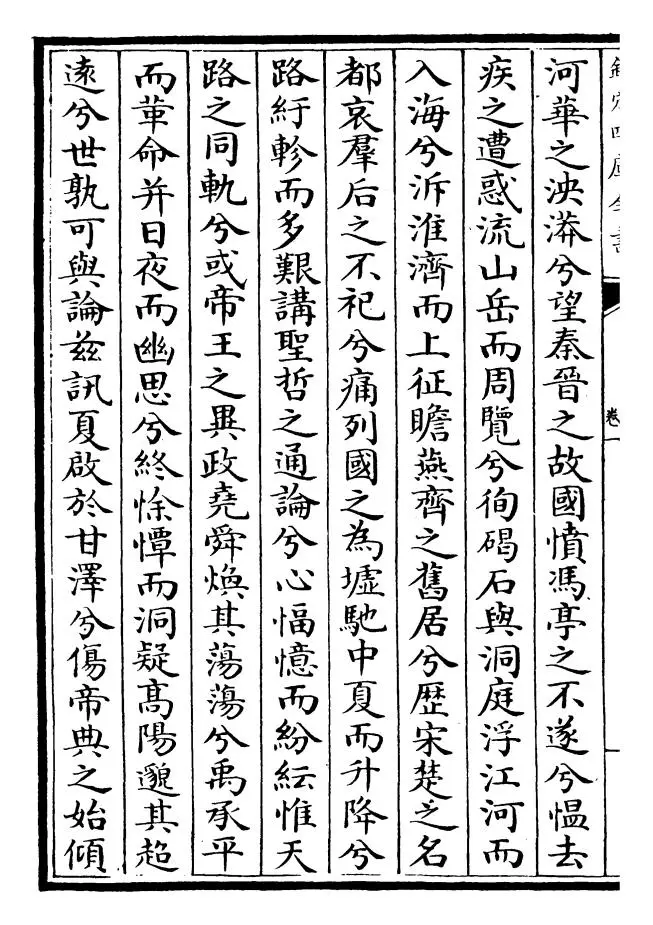 欽定四庫全書
卷一
河華之泱漭兮望秦晉之故國憤馮亭之不遂兮愠去
疾之遭惑流山岳而周覽兮徇碣石與洞庭浮江河而
入海兮泝淮濟而上征瞻燕齊之舊居兮歷宋楚之名
都哀羣后之不祀兮痛列國之為墟馳中夏而升降兮
路紆軫而多艱講聖哲之通論兮心愊憶而紛紜惟天
路之同軌兮或帝王之異政堯舜煥其蕩蕩兮禹承平
而革命并日夜而幽思兮終悇憛而洞疑髙陽邈其超
遠兮世孰可與論兹訊夏啟於甘澤兮傷帝典之始傾